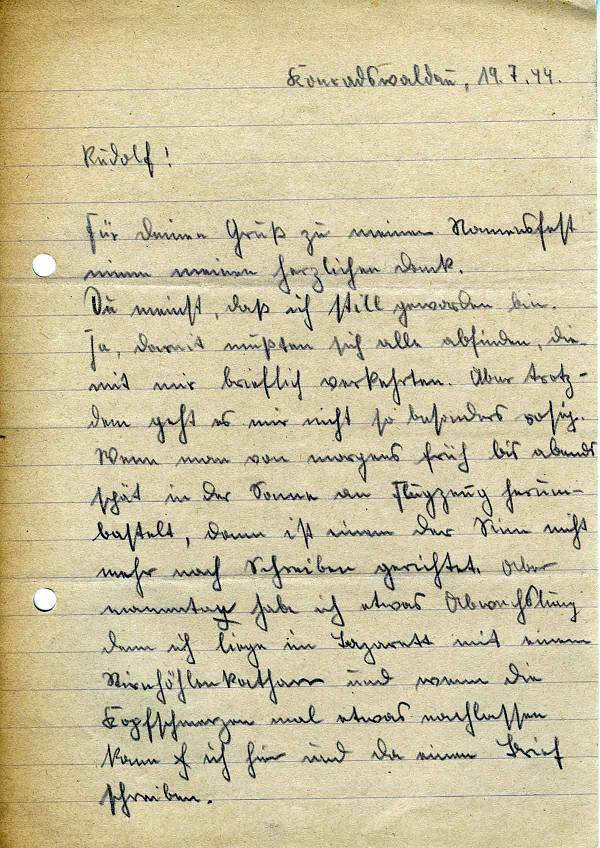 Konradswaldau, 19.7.44.
Rudolf!
Für Deinen Gruß zu meinem Namensfest
nimm meinen herzlichen Dank.
Du meinst, daß ich still geworden bin.
Ja, damit mußten sich alle abfinden, die
mit mir brieflich verkehrten. Aber trotz-
dem geht es mir nicht so besonders rosig.
Wenn man von morgens früh bis abends
spät in der Sonne an Flugzeug herum-
bastelt, dann ist einem der Sinn nicht
mehr nach Schreiben gerichtet. Aber
habe ich etwas Abwechslung
denn ich liege im Lazarett mit einem
Stirnhöhlenkatharr und wenn die
Kopfschmerzen mal etwas nachlassen
kann ich hier und da einen Brief
schreiben.